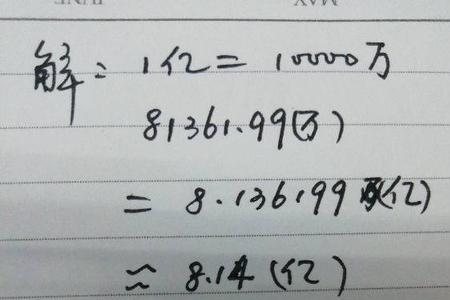 解：1亿=10000万
81361.99(万)
=8.136199(亿)
≈8.14(亿)